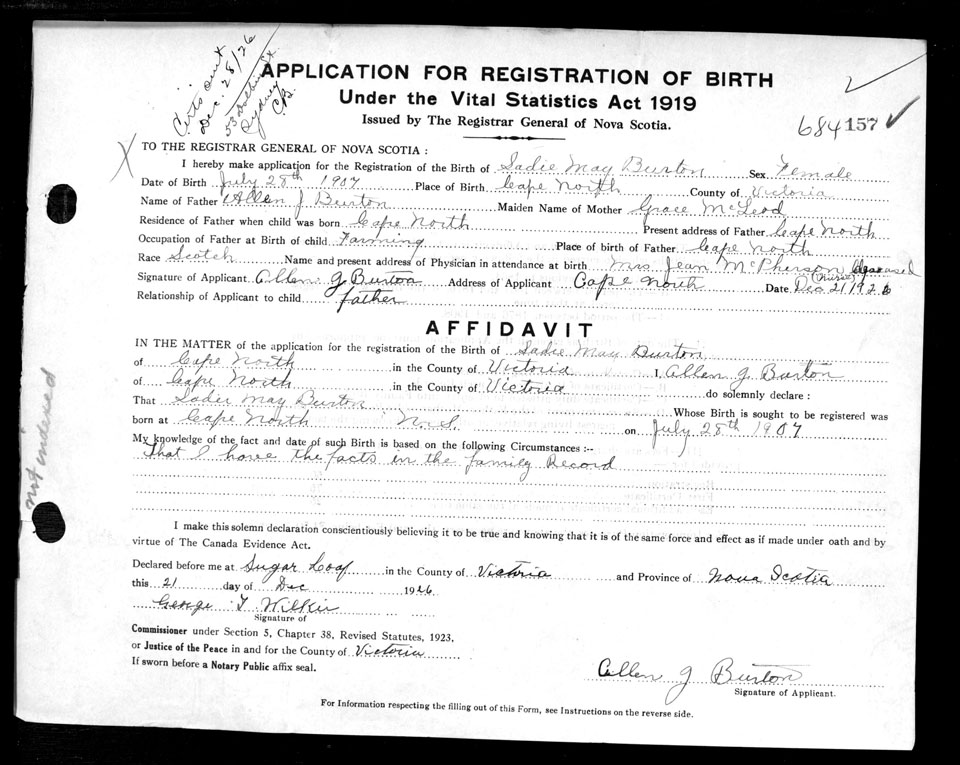 Cert's sent
Dec. 28/26
53 Dolbin St.
Sydney
C.B.
APPLICATION FOR REGISTRATION OF BIRTH
Under the Vital Statistics Act 1919
Issued by The Registrar General of Nova Scotia.
684157
TO THE REGISTRAR GENERAL OF NOVA SCOTIA :
I hereby make application for the Registration of the Birth of Sadie May Burton Sex Female
Date of Birth July 28th 1907 Place of Birth Cape North County of Victoria
Name of Father Allen J Burton Maiden Name of Mother Grace McLeod
Residence of Father when child was born Cape North Present address of Father Cape North
Occupation of Father at Birth of child Farming Place of birth of Father Cape North
Race Scotch Name and present address of Physician in attendance at birth Mrs Jean McPherson deceased
(Nurse)
Signature of Applicant Allen J Burton Address of Applicant Cape North Date Dec 21 1926
Relationship of Applicant to child father
AFFIDAVIT
IN THE MATTER of the application for the registration of the Birth of Sadie May Burton
of Cape North in the County of Victoria I, Allen J Burton
of Cape North in the County of Victoria do solemnly declare :
That Sadie May Burton Whose Birth is sought to be registered was
born at Cape North N.S. on July 28th 1907
My knowledge of the fact and date of such Birth is based on the following Circumstances :--
That I have the facts in the family Record
not indexed
I make this solemn declaration conscientiously believing it to be true and knowing that it is of the same force and effect as if made under oath and by
virtue of The Canada Evidence Act.
Declared before me at Sugar Loaf in the County of Victoria and Province of Nova Scotia
this 21 day of Dec 1926
George T Wilkie
Signature of
Commissioner under Section 5, Chapter 38, Revised Statutes, 1923,
or Justice of the Peace in and for the County of Victoria
If sworn before a Notary Public affix seal.
Allen J Burton
Signature of Applicant.
For Information respecting the filling out of this Form, see Instructions on the reverse side.